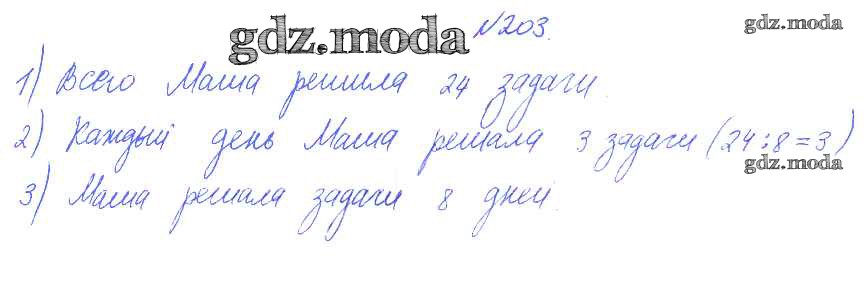 gdz.moda №203. gdz.moda
1) Всего Маша решила 24 задачи.
2) Каждый день Маша решала 3 задачи (24:8=3)
gdz.moda
3) Маша решала задачи 8 дней.